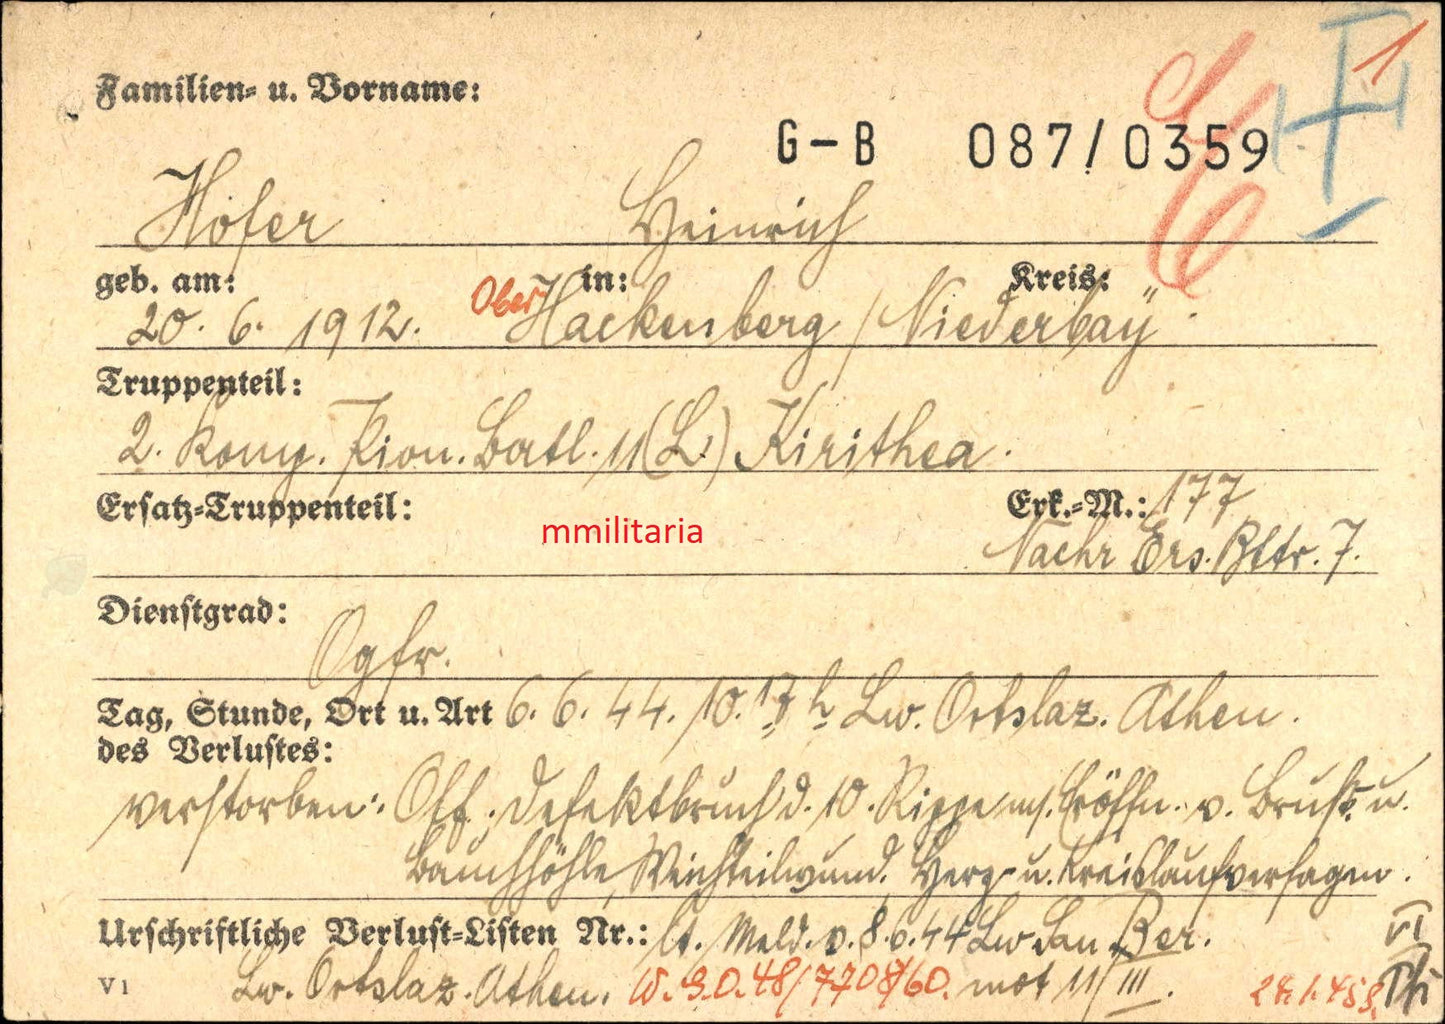 Familien- u. Vorname:
G-B 087/0359
Höfer Heinrich
geb. am: in: Kreis:
20. 6. 1912. Ober Hackenberg / Niederbay
Truppenteil:
2. Komp. Pion. Batl. 11 (L.) Kirithea.
Ersatz-Truppenteil: Erk.-M.: 177
mmilitaria
Nachr Ers. Bttr. 7.
Dienstgrad:
Ogfr.
Tag, Stunde, Ort u. Art 6. 6. 44. 10.17 h Lw. Ortslaz. Athen.
des Verlustes:
verstorben: Off. Defektbruch d. 10. Rippe m. Eröffn. v. Brust u.
Bauchhöhle, Weichteilwund. Herz- u. Kreislaufversagen.
Urschriftliche Verlust-Listen Nr.: lt. Meld. v. 8.6.44 Lw San Ber.
V1 Lw. Ortslaz. Athen. mot 11/III.